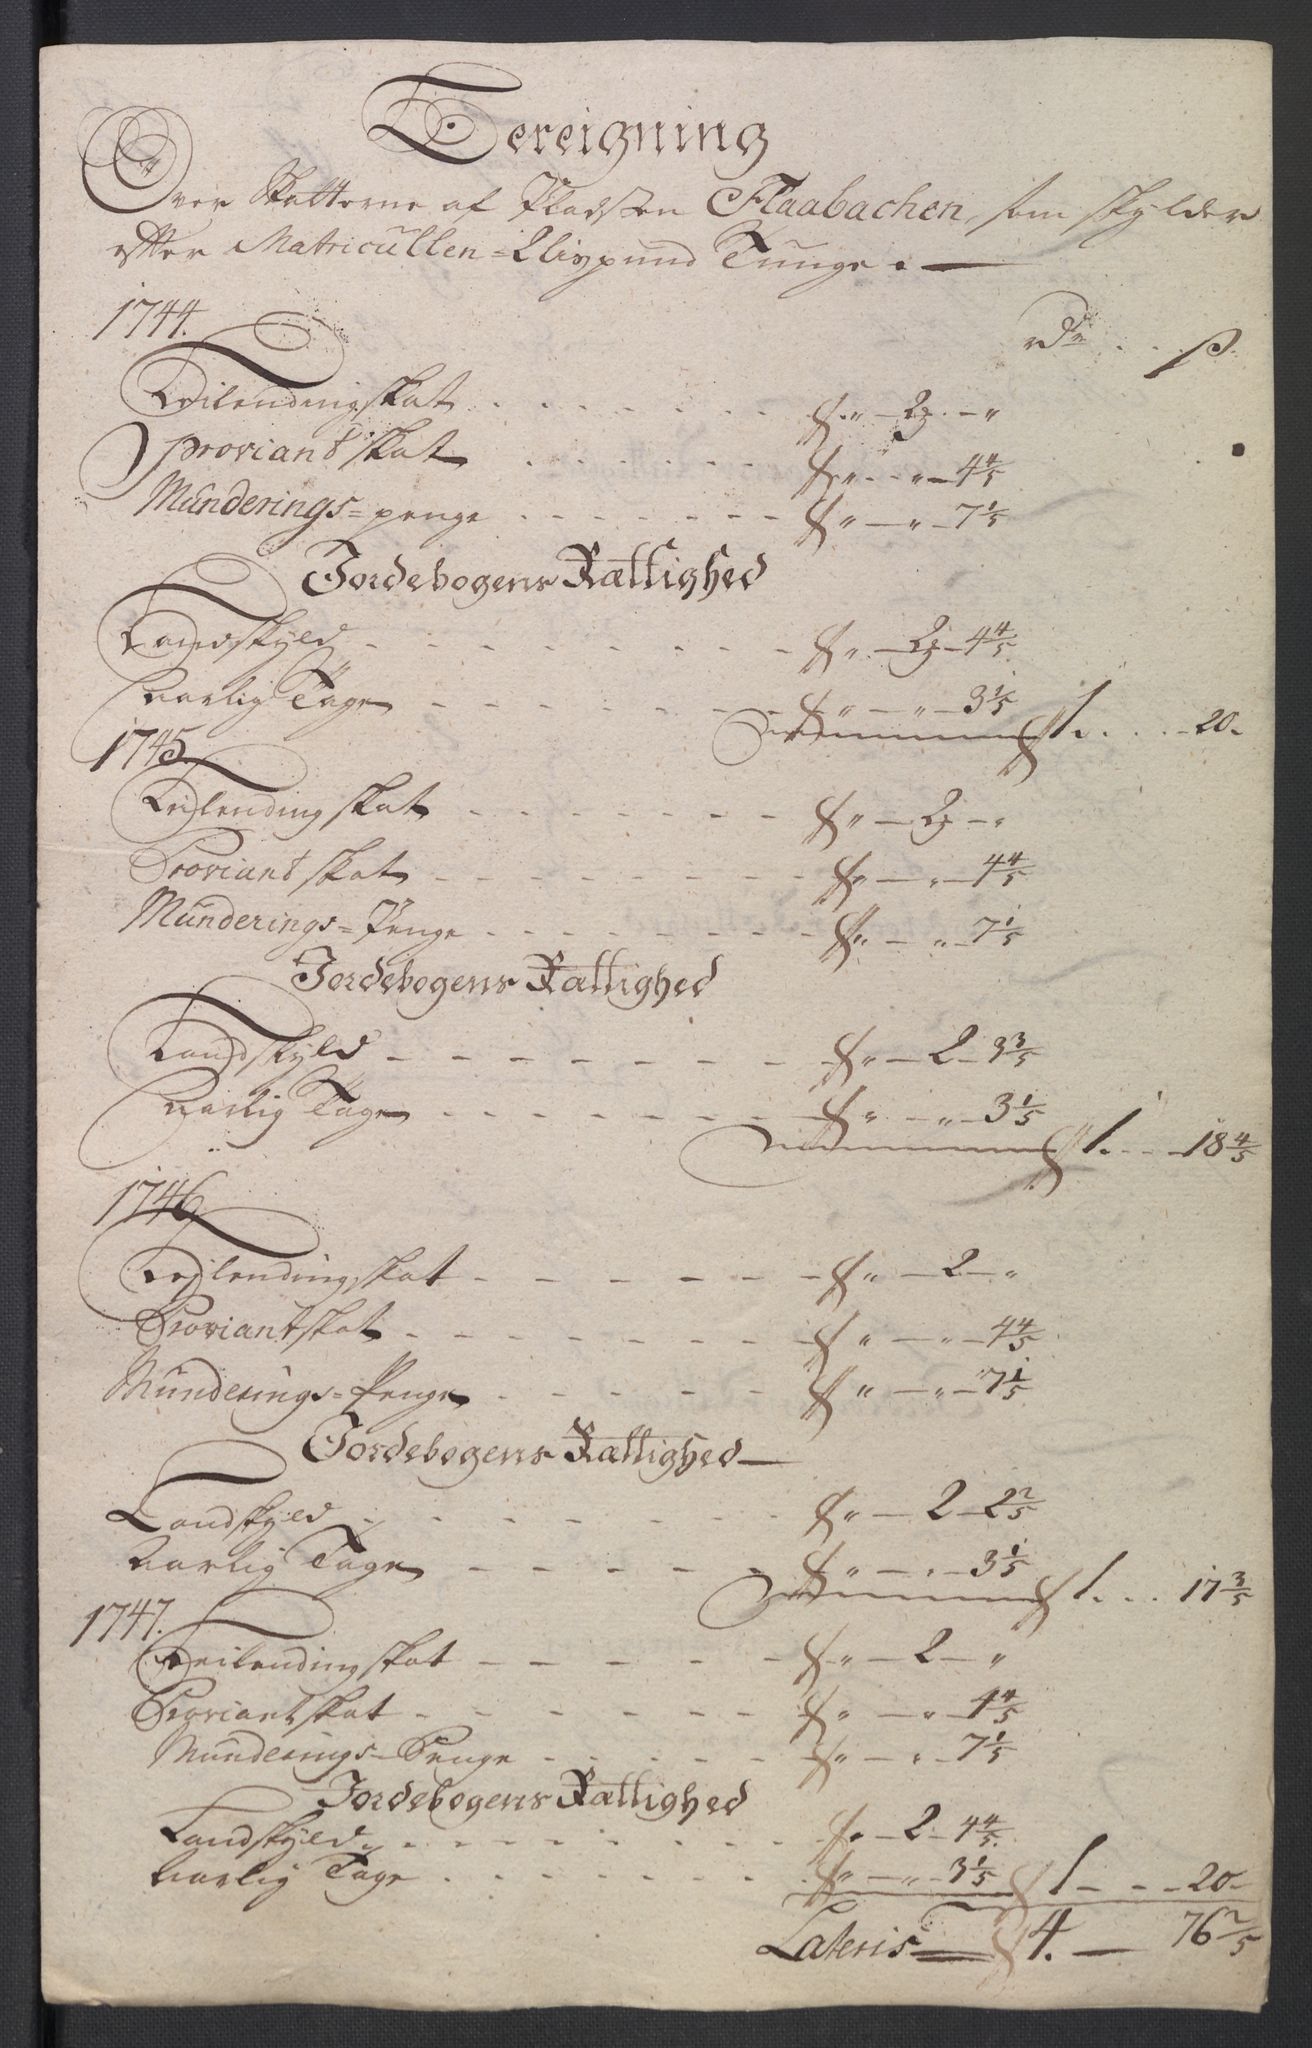 Bereigning
Over Skatterne af Pladsen Flaabachen, som skylder
efter Matricullen = Lispund Tunge. —
1744.
Rdr . . . ß.
Leilendingskat . . . „ — 2 — „
Proviant skat . . . „ — „ — 4 4/5
Munderings = penge . . . „ — „ — 7 1/5
Jordebogens Rættighed
Landskyld . . . „ — 2 — 4 4/5
Aarlig Tage . . . „ — „ — 3 1/5
1. . . . 20.
1745.
Leylending skat . . . „ — 2 — „
Proviant skat . . . „ — „ — 4 4/5
Munderings = Penge . . . „ — „ — 7 1/5
Jordebogens Rættighed
Landskyld . . . „ — 2 — 3 3/5
Aarlig Tage . . . „ — „ — 3 1/5
1. . . . 18 4/5
1746
Leylending skat . . . „ — 2 — „
Proviant skat . . . „ — „ — 4 4/5
Munderings = Penge . . . „ — „ — 7 1/5
Jordebogens Rættighed —
Landskyld . . . „ — 2 — 2 2/5
Aarlig Tage . . . „ — „ — 3 1/5
1. . . . 17 3/5
1747.
Leilending skat . . . „ — 2 — „
Proviant skat . . . „ — „ — 4 4/5
Munderings = Penge . . . „ — „ — 7 1/5
Jordebogens Rættighed
Landskyld . . . „ — 2 — 4 4/5
Aarlig Tage . . . „ — „ — 3 1/5 1 — — — 20 —
Lateris — 4. — 76 2/5